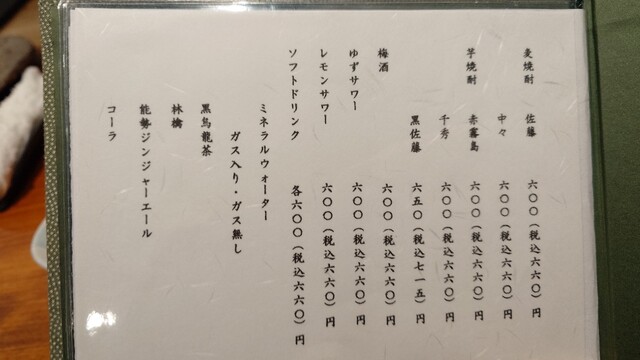 麦焼酎 佐藤 六〇〇(税込六六〇)円
中々 六〇〇(税込六六〇)円
芋焼酎 赤霧島 六〇〇(税込六六〇)円
千秀 六〇〇(税込六六〇)円
黒佐藤 六五〇(税込七一五)円
梅酒 六〇〇(税込六六〇)円
ゆずサワー 六〇〇(税込六六〇)円
レモンサワー 六〇〇(税込六六〇)円
ソフトドリンク 各六〇〇(税込六六〇)円
ミネラルウォーター
ガス入り・ガス無し
黒烏龍茶
林檎
能勢ジンジャーエール
コーラ